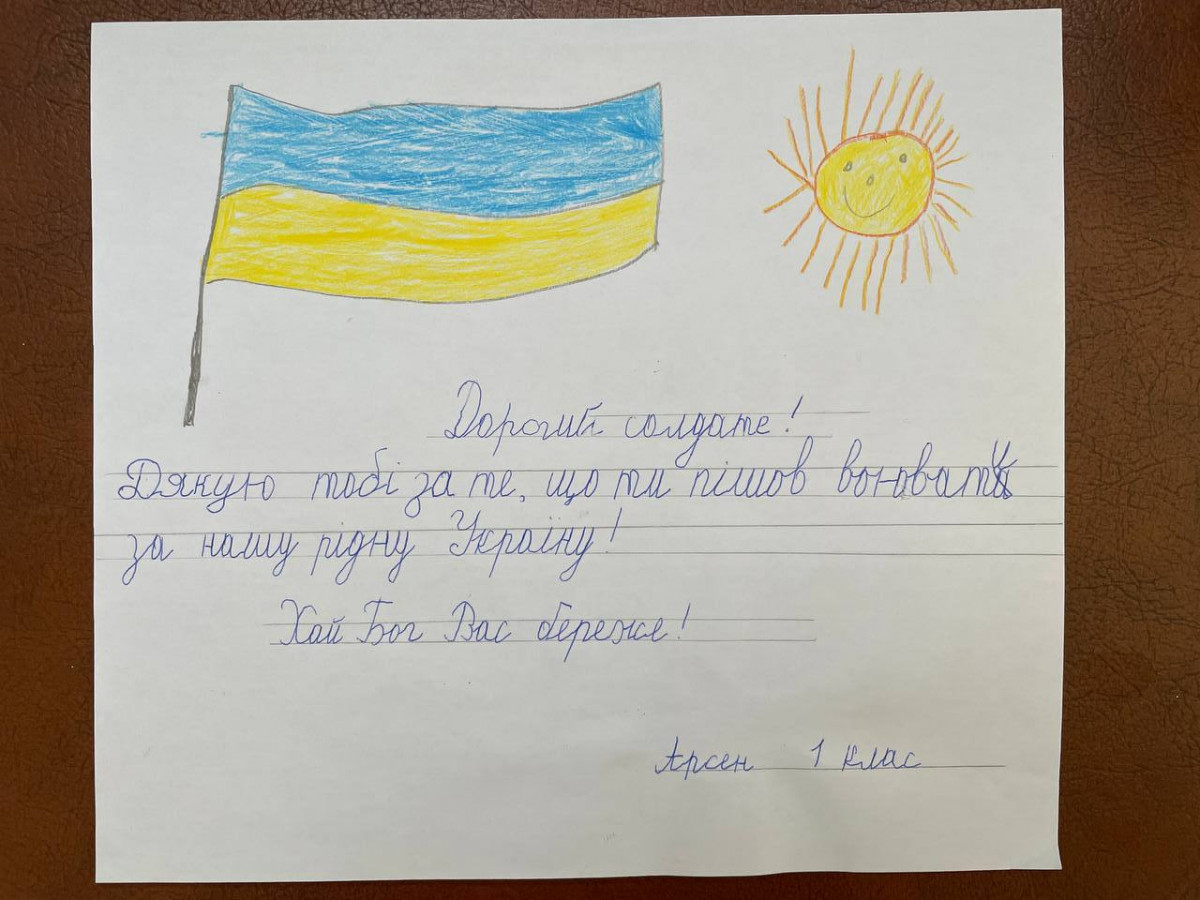 Дорогий солдате!
Дякую тобі за те, що ти пішов воювати
за нашу рідну Україну!
Хай Бог Вас береже!
Арсен 1 клас